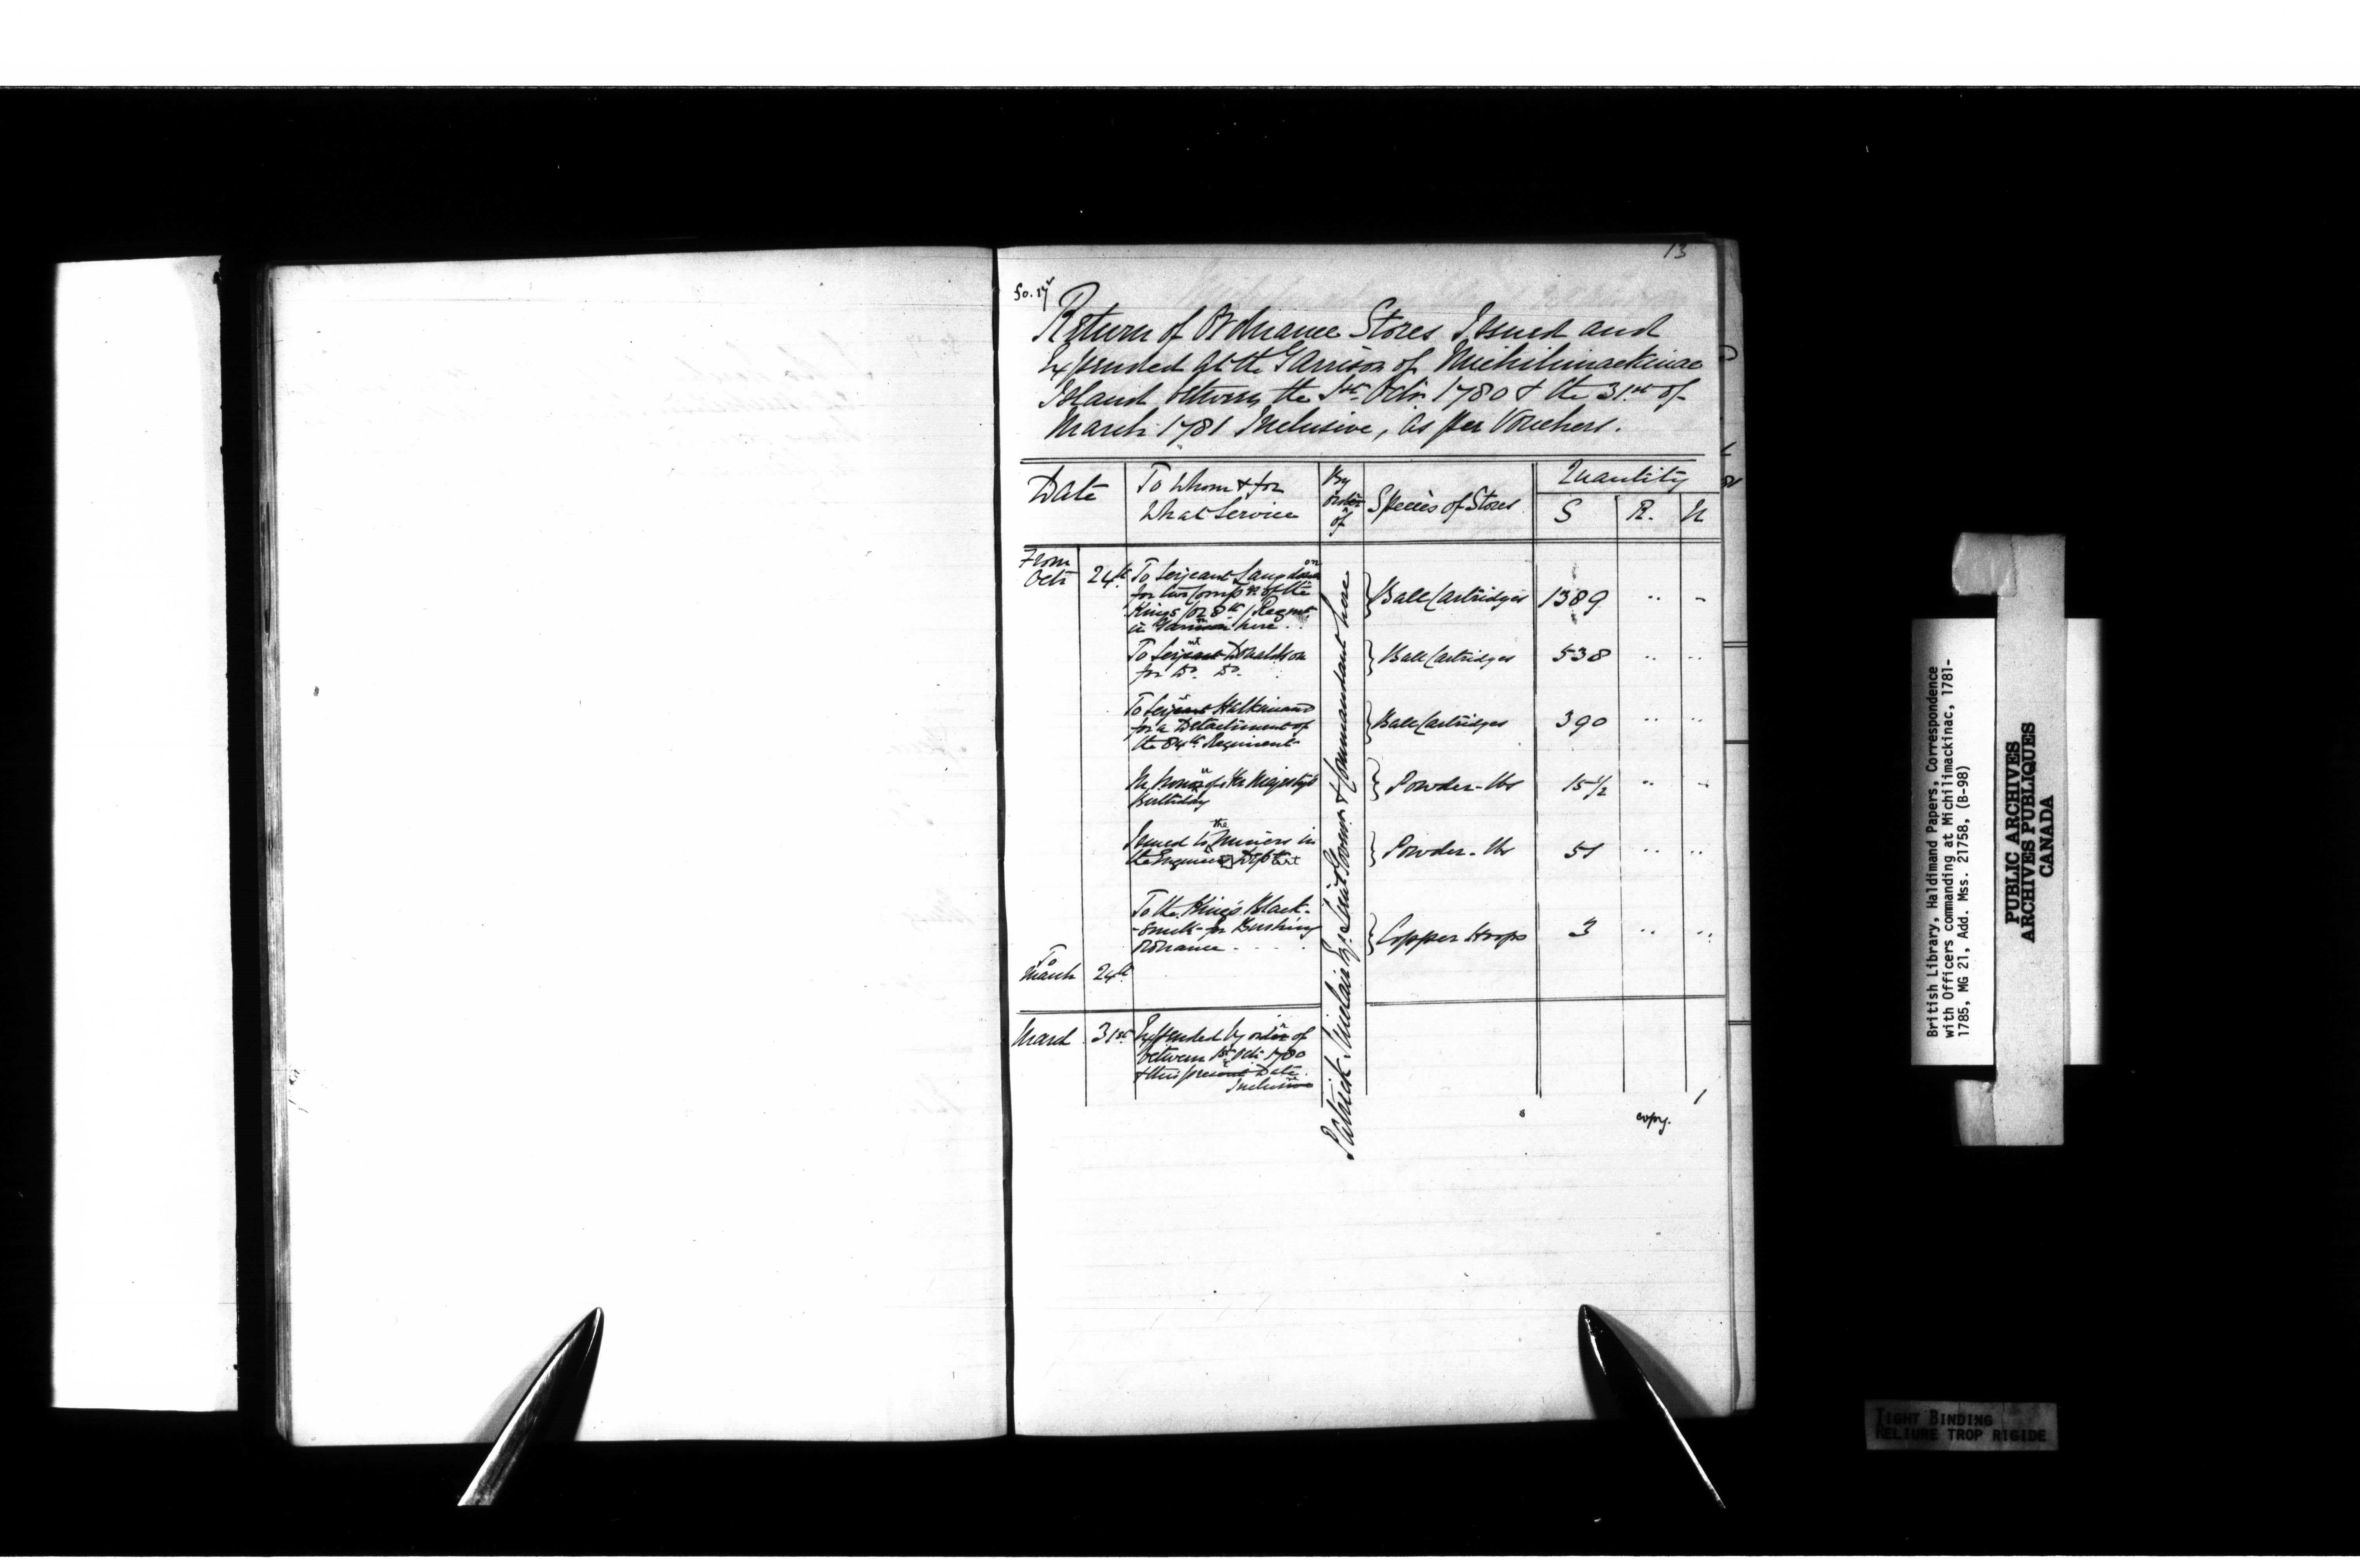 13
fo. 17
Return of Ordnance Stores Issued and
Expended at the Garrison of Michilimackinac
Island between the 1st Octr. 1780 & the 31st of
March 1781 Inclusive, as per Vouchers.
Date
To Whom & for
What Service
By
order
of
Species of Stores
Quantity
S
R.
U
From
Octr 24th
To Serjeant Langdon
for two Comps of the
Kings (or 8th) Regmt
in Garrison here
} Ball Cartridges 1389 .. ..
To Serjeant Donaldson
for Do. Do.
} Ball Cartridges 538 .. ..
To Serjeant
for a Detachment of
the 84th Regiment
} Ball Cartridges 390 .. ..
In honor of Her Majesty's
Birthday
} Powder - lbs 15 1/2 .. ..
Issued to the Miners in
the Engineer Deptart
} Powder - lbs 51 .. ..
To the King's Black-
-smith for Bushing
Ordnance . . . .
} Copper Hoops 3 .. ..
To
March 24th
Patrick Sinclair Esqr. Lieut Governr. & Commandant here
March 31st Expended by order of
between 1st Octr 1780
& this present Date
Inclusive
copy.
British Library, Haldimand Papers, Correspondence
with Officers commanding at Michilimackinac, 1781-
1785, MG 21, Add. Mss. 21758, (B-98)
PUBLIC ARCHIVES
ARCHIVES PUBLIQUES
CANADA
TIGHT BINDING
RELIURE TROP RIGIDE